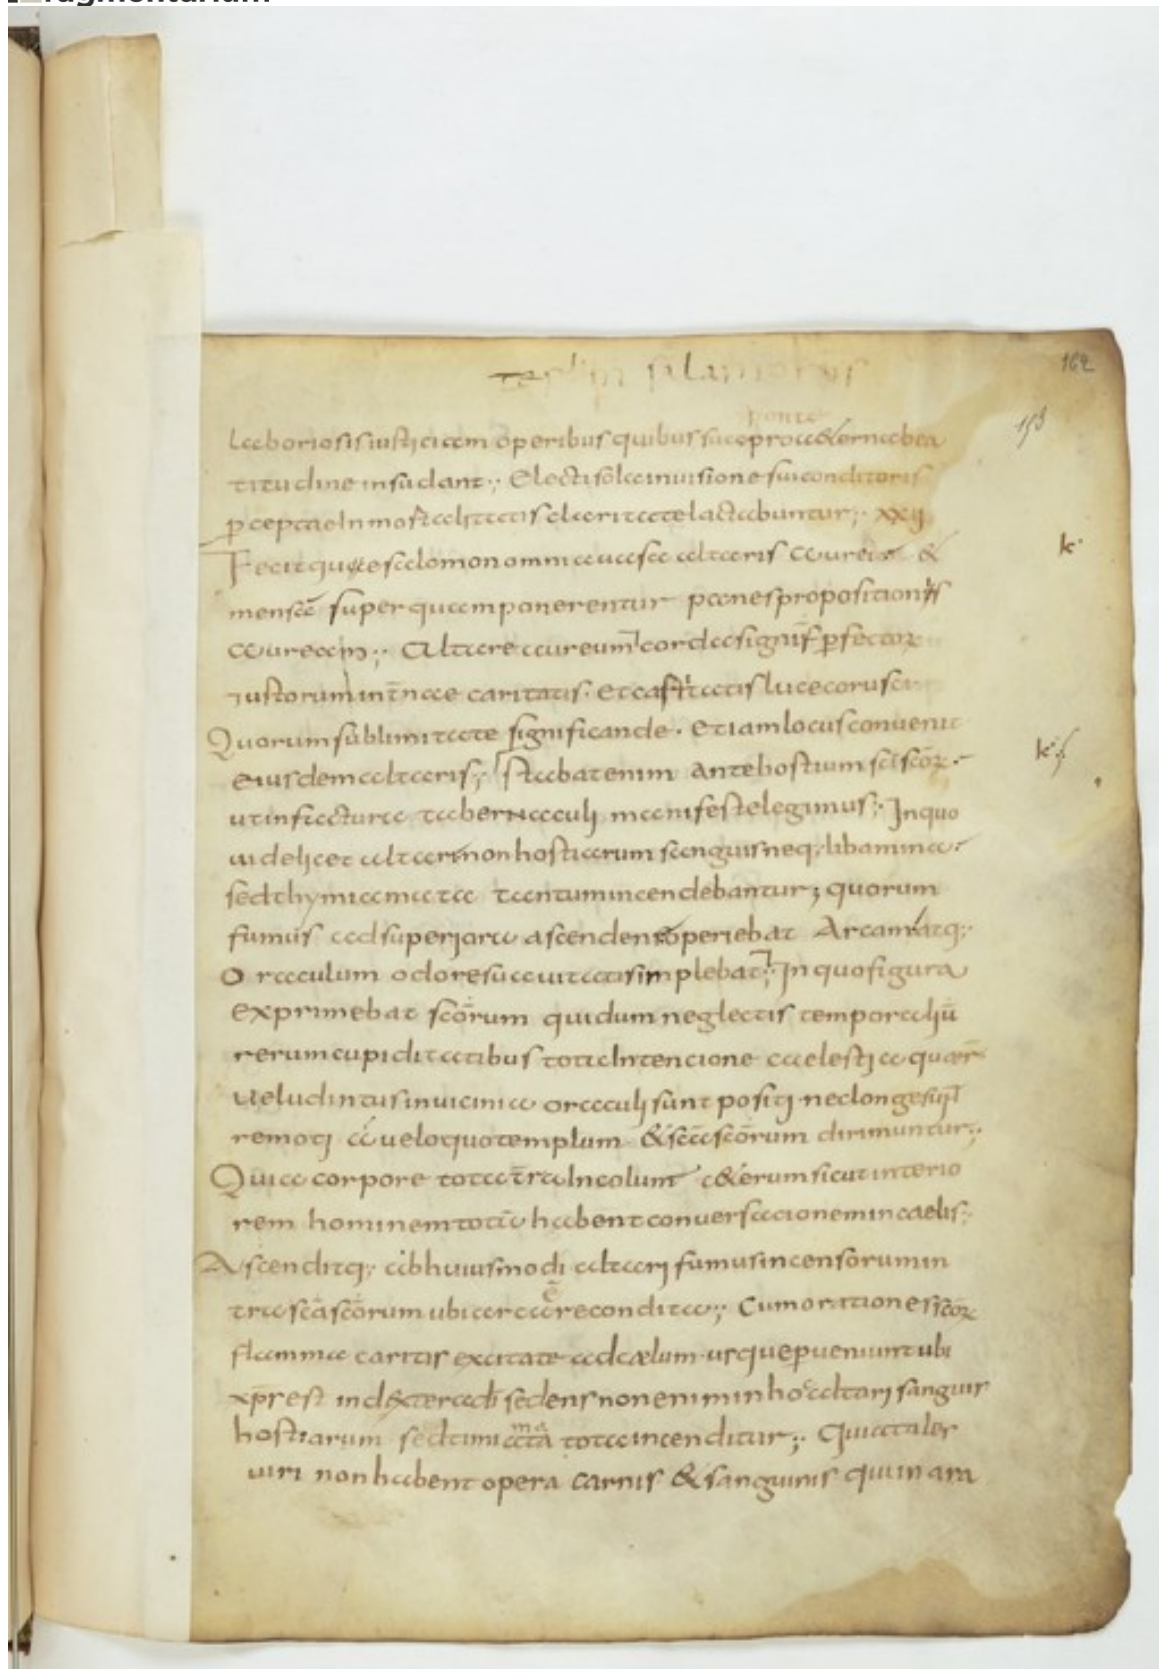 162
153
laboriosis iustitiam operibus quibus sua pro aeterna bea
titudine insudant ; Electi sola in uisione sui conditoris
pceptae In mortalitatis claritate lactabuntur ; xxij
k
Fecitque salomon omnia uasa altaris aurei &
mensã super quam ponerentur panes propositionis
auream ; Altare aureum corda signif pfector
iustorum interna caritatis et castitatis luce corusc
Quorum sublimitate significande . Etiam locus conuenit
k
eiusdem altaris ; stabat enim ante hostium scī scōr .
ut in factura tabernaculi manifeste legimus ; In quo
uidelicet altari non hostiarum sanguis neq; libamina
sed thymiamata tantum incendebantur ; quorum
fumus ad superiora ascendens operiebat Arcam atq;
Oraculum odore suauitatis implebat ; In quo figura
exprimebat scōrum qui dum neglectis temporaliū
rerum cupiditatibus tota Intencione caelestia quaer
uelud intus in uicinia oraculi sunt positi . nec longe
remoti a uelo quo templum & scā scōrum dirimuntur ;
Quia corpore toto trā Incolunt ceterum sicut interio
rem hominem totū habent conuersacionem in caelis ;
Ascenditq; ab huiusmodi altari fumus incensorum in
tra scā scōrum ubi arca ē recondita ; Cum orationes scōr
flamma caritis excitate ad caelum usque pueniunt ubi
xp̄s est in dextera dī sedens non enim in hoc altari sanguis
hostiarum sed timiamata tota incenditur ; Quia tales
uiri non habent opera carnis & sanguinis qui in ara